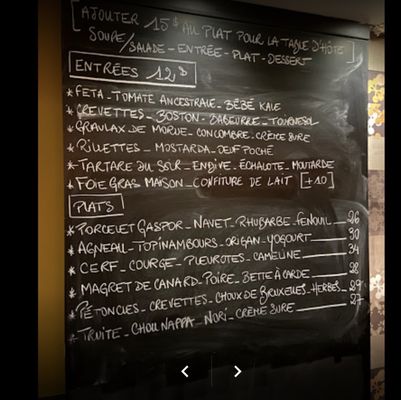 [AJOUTER 15$ AU PLAT POUR LA TABLE D'HÔTE]
SOUPE/SALADE - ENTRÉE - PLAT - DESSERT
ENTRÉES 12$
* FETA - TOMATE ANCESTRALE - BÉBÉ KALE
* CREVETTES - BOSTON - BABEURRE - TOURNESOL
* GRAVLAX DE MORUE - CONCOMBRE - CRÈME SURE
* RILLETTES - MOSTARDA - OEUF POCHÉ
* TARTARE DU JOUR - ENDIVE - ÉCHALOTE - MOUTARDE
* FOIE GRAS MAISON - CONFITURE DE LAIT [+10]
PLATS
* PORCELET GASPOR - NAVET - RHUBARBE - FENOUIL - 26
* AGNEAU - TOPINAMBOURS - ORIGAN - YOGOURT - 30
* CERF - COURGE - PLEUROTES - CAMELINE - 34
* MAGRET DE CANARD - POIRE - BETTE À CARDE - 28
* PÉTONCLES - CREVETTES - CHOUX DE BRUXELLES - HERBES - 29
* TRUITE - CHOU NAPPA - NORI - CRÈME SURE - 27